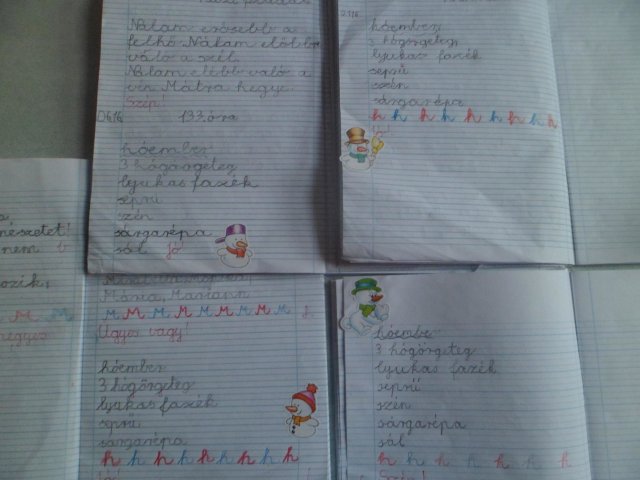 Nálam erősebb a
felhő. Nálam előbb
való a szél.
Nálam előbb való a
vén Mátra hegye.
Szép!
133. óra
hóember
3 hógörgeteg
lyukas fazék
seprű
szén
sárgarépa
sál
jó!
hóember
3 hógörgeteg
lyukas fazék
seprű
szén
sárgarépa
h h h h h h h h h
nem
Mária, Marianna
M M M M M M M M M
Ügyes vagy!
hóember
3 hógörgeteg
lyukas fazék
seprű
sárgarépa
h h h h h h h h h
hóember
3 hógörgeteg
lyukas fazék
seprű
szén
sárgarépa
sál
h h h h h h h
Szép!